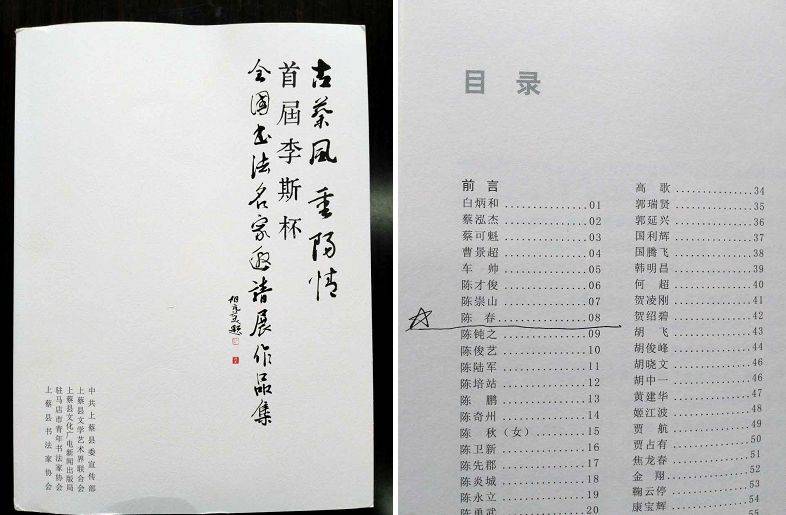 古蔡风 重阳情
首届李斯杯
全国书法名家邀请展作品集
中共上蔡县委宣传部
上蔡县文学艺术界联合会
上蔡县文化广电新闻出版局
驻马店市青年书法家协会
上蔡县书法家协会
目 录
前 言
白炳和 01
蔡泓杰 02
蔡可魁 03
曹景超 04
车 帅 05
陈才俊 06
陈崇山 07
陈 春 08
陈钝之 09
陈俊艺 10
陈陆军 11
陈培站 12
陈 鹏 13
陈奇州 14
陈 秋（女） 15
陈卫新 16
陈先郡 17
陈炎城 18
陈永立 19
陈勇武 20
高 歌 34
郭瑞贤 35
郭延兴 36
国利辉 37
国腾飞 38
韩明昌 39
何 超 40
贺凌刚 41
贺绍碧 42
胡 飞 43
胡俊峰 44
胡晓文 46
胡中一 46
黄建华 47
姬江波 48
贾 航 49
贾占有 50
焦龙春 51
金 翔 52
鞠云停 53
康宝辉 54
55